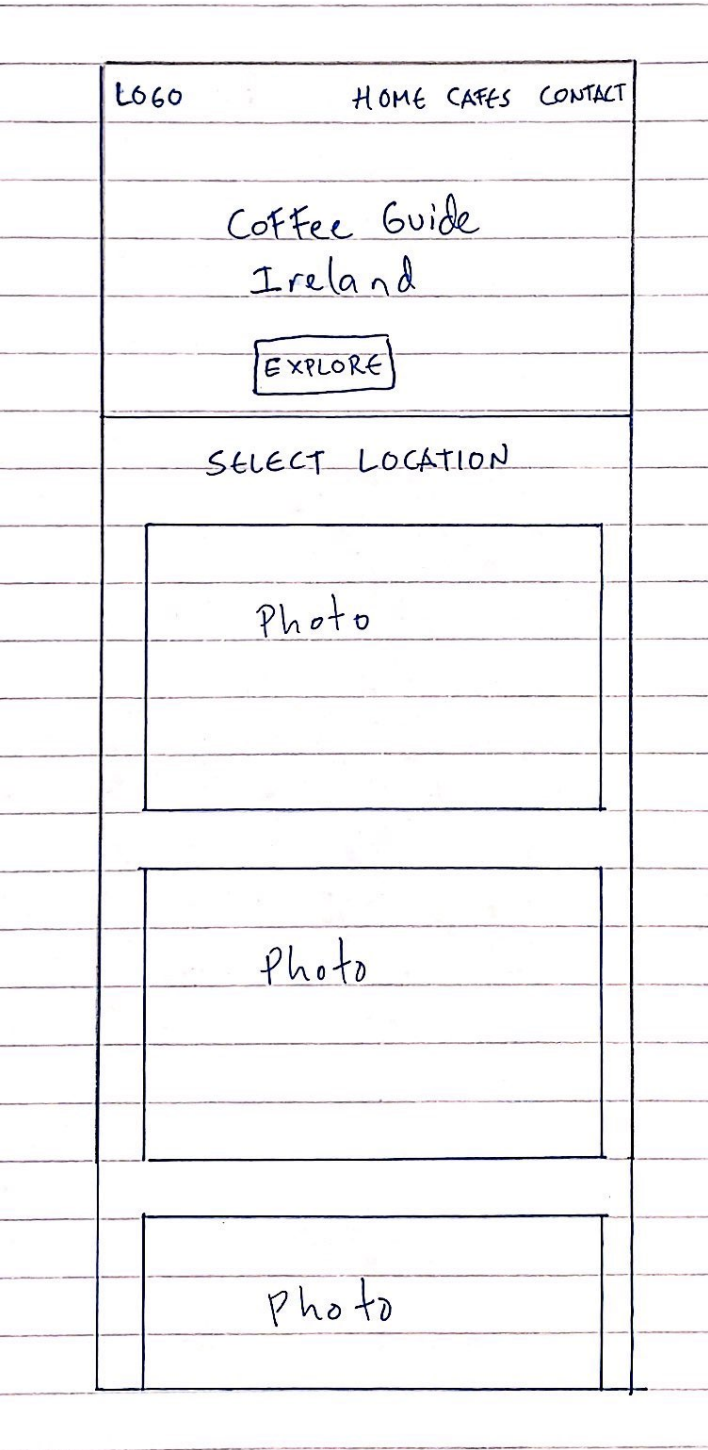 LOGO HOME CAFES CONTACT
Coffee Guide
Ireland
EXPLORE
SELECT LOCATION
Photo
Photo
Photo